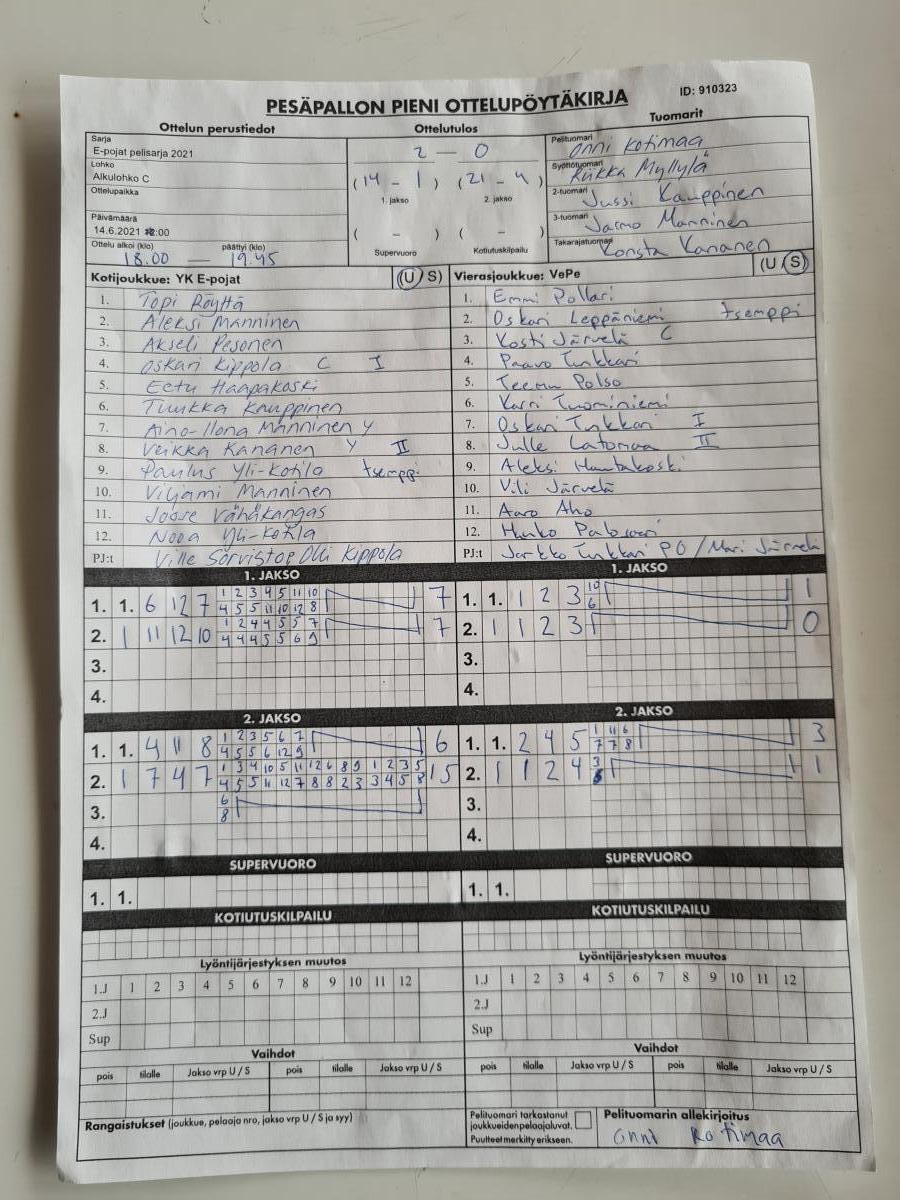 ID: 910323
PESÄPALLON PIENI OTTELUPÖYTÄKIRJA
Ottelun perustiedot
Ottelutulos
Tuomarit
Sarja
E-pojat pelisarja 2021
Lohko
Alkulohko C
Ottelupaikka
Päivämäärä
14.6.2021 18:00
Ottelu alkoi (klo) päättyi (klo)
18.00 — 19.45
2 — 0
(14 - 1) (21 - 4)
1. jakso 2. jakso
( - ) ( - )
Supervuoro Kotiutuskilpailu
Pelituomari Onni Kotimaa
Syöttötuomari Riikka Myllylä
2-tuomari Jussi Kauppinen
3-tuomari Jarmo Manninen
Takarajatuomari Konsta Kananen
Kotijoukkue: YK E-pojat (U/S)
1. Topi Röyttä
2. Aleksi Manninen
3. Akseli Pesonen
4. Oskari Kippola C I
5. Eetu Haapakoski
6. Tuukka Kauppinen
7. Aino-Ilona Manninen Y
8. Veikka Kananen Y II
9. Paulus Yli-Kotila tsemppi
10. Viljami Manninen
11. Joose Vähäkangas
12. Nooa Yli-Kotila
PJ:t Ville Sorvisto Olli Kippola
Vierasjoukkue: VePe (U/S)
1. Emmi Pollari
2. Oskari Leppäniemi tsemppi
3. Kosti Järvelä C
4. Paavo Turkkari
5. Teemu Polso
6. Karri Tuominiemi
7. Oskari Turkkari I
8. Julle Latomaa II
9. Aleksi Hautakoski
10. Vili Järvelä
11. Aaro Aho
12. Harko
PJ:t Jarkko Turkkari PO / Mari Järvelä
1. JAKSO
1. 1. 6 12 7 1 2 3 4 5 11 10 7
4 5 5 11 10 12 8
2. 1 11 12 10 1 2 4 4 5 5 7 7
4 4 4 5 5 6 9
3.
4.
1. JAKSO
1. 1. 1 2 3 10 1
6
2. 1 1 2 3 0
3.
4.
2. JAKSO
1. 1. 4 11 8 1 2 3 5 6 7 6
4 5 5 6 12 9
2. 1 7 4 7 1 3 4 10 5 11 12 6 8 9 1 2 3 5 15
4 5 5 11 12 7 8 8 2 3 3 4 5 8
3. 6
8
4.
2. JAKSO
1. 1. 2 4 5 1 11 6 3
7 7 8
2. 1 1 2 4 3 1
3.
4.
SUPERVUORO
1. 1.
SUPERVUORO
1. 1.
KOTIUTUSKILPAILU
KOTIUTUSKILPAILU
Lyöntijärjestyksen muutos
1.J 1 2 3 4 5 6 7 8 9 10 11 12
2.J
Sup
Lyöntijärjestyksen muutos
1.J 1 2 3 4 5 6 7 8 9 10 11 12
2.J
Sup
Vaihdot
pois tilalle Jakso vrp U / S pois tilalle Jakso vrp U / S
Vaihdot
pois tilalle Jakso vrp U / S pois tilalle Jakso vrp U / S
Rangaistukset (joukkue, pelaaja nro, jakso vrp U / S ja syy)
Pelituomari tarkastanut
joukkueidenpelaajaluvat.
Puutteet merkitty erikseen.
Pelituomarin allekirjoitus
Onni Kotimaa